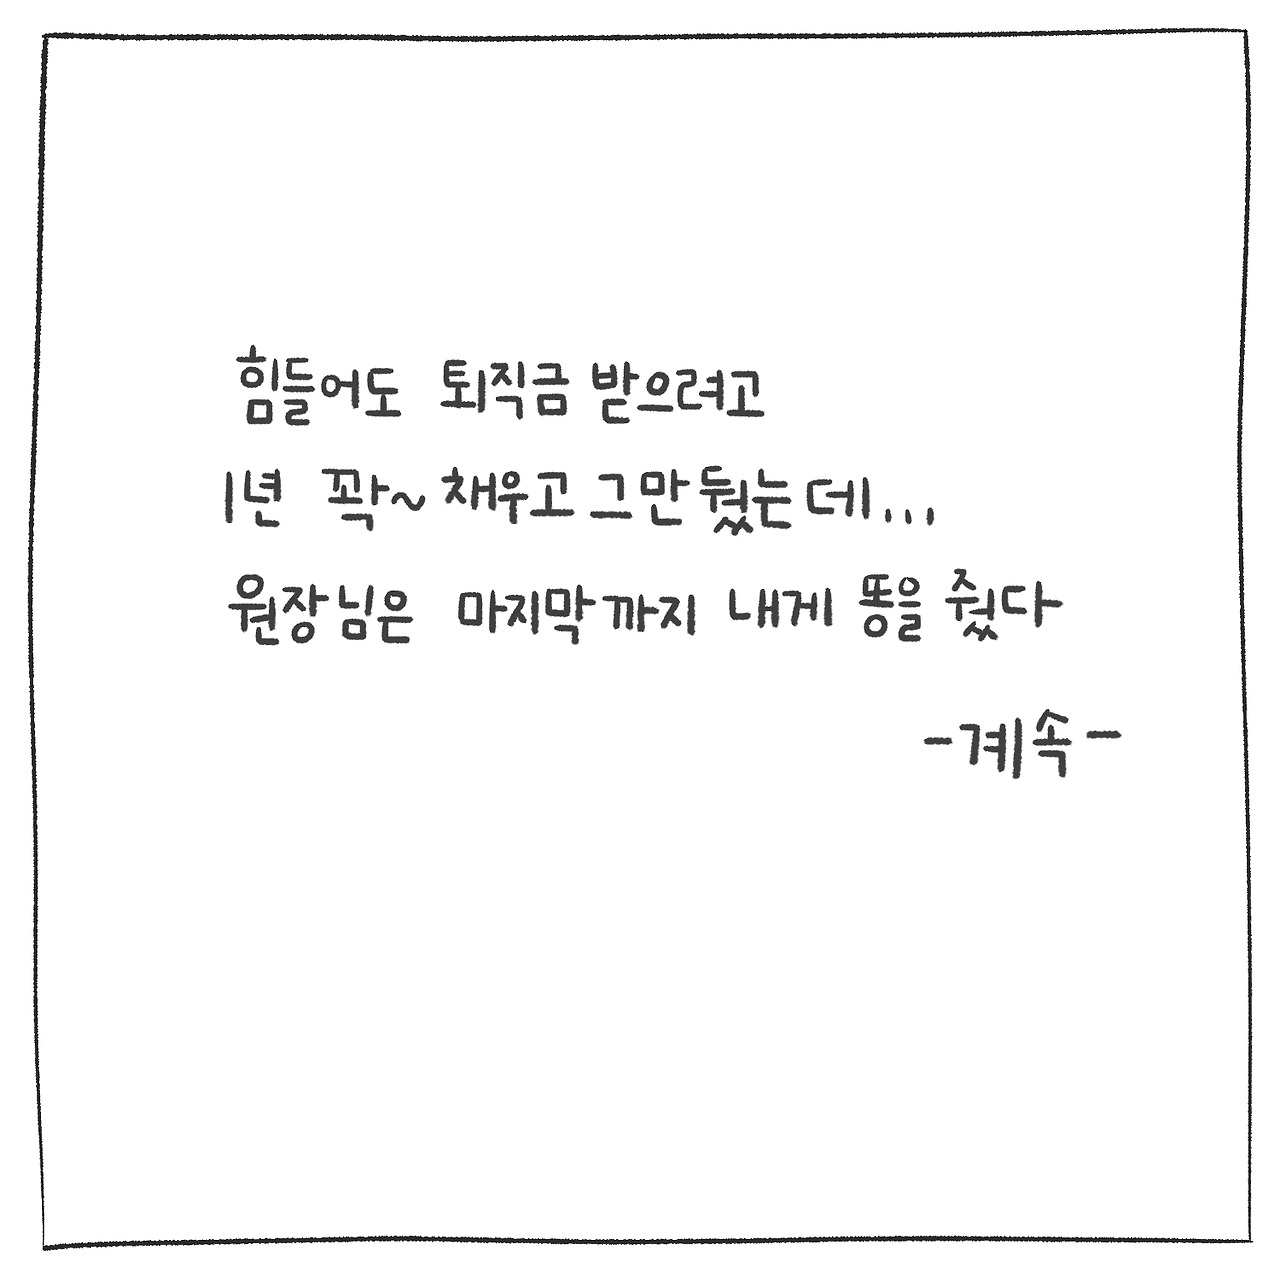 힘들어도 퇴직금 받으려고
1년 꽉~ 채우고 그만뒀는데...
원장님은 마지막까지 내게 똥을 줬다
-계속-